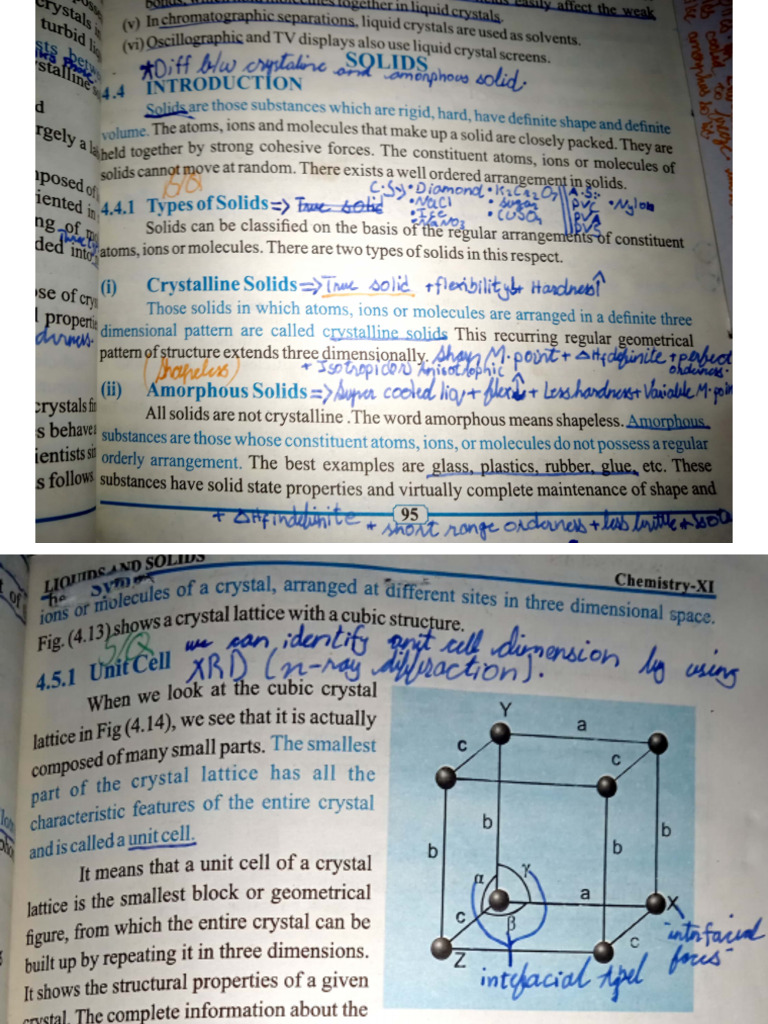 together in liquid crystals. easily affect the weak
(v) In chromatographic separations, liquid crystals are used as solvents.
(vi) Oscillographic and TV displays also use liquid crystal screens.
SOLIDS
*Diff b/w crystaline and amorphous solid.
4.4 INTRODUCTION
Solids are those substances which are rigid, hard, have definite shape and definite
volume. The atoms, ions and molecules that make up a solid are closely packed. They are
held together by strong cohesive forces. The constituent atoms, ions or molecules of
solids cannot move at random. There exists a well ordered arrangement in solids.
C.S => • Diamond • K2Cr2O7 A.S:
• NaCl • Sugar PVC • Nylon
• Ice • CuSO4 PVA
4.4.1 Types of Solids => True solid
Solids can be classified on the basis of the regular arrangements of constituent
atoms, ions or molecules. There are two types of solids in this respect.
(i) Crystalline Solids => True solid + flexibility↓ + Hardness↑
Those solids in which atoms, ions or molecules are arranged in a definite three
dimensional pattern are called crystalline solids This recurring regular geometrical
pattern of structure extends three dimensionally. Sharp M.point + ΔHf definite + perfect
orderness.
(Shapeless) + Isotropic or Anisotrophic
(ii) Amorphous Solids => Super cooled liq + flexi↑ + Less hardness + Variable M.poin
All solids are not crystalline .The word amorphous means shapeless. Amorphous
substances are those whose constituent atoms, ions, or molecules do not possess a regular
orderly arrangement. The best examples are glass, plastics, rubber, glue, etc. These
substances have solid state properties and virtually complete maintenance of shape and
95
+ ΔHf indefinite + short range orderness + less brittle + Iso
LIQUIDS AND SOLIDS Chemistry-XI
ions or molecules of a crystal, arranged at different sites in three dimensional space.
Fig. (4.13) shows a crystal lattice with a cubic structure.
S/Q we can identify unit cell dimension by using
4.5.1 Unit Cell XRD (x-ray diffraction).
When we look at the cubic crystal
lattice in Fig (4.14), we see that it is actually
composed of many small parts. The smallest
part of the crystal lattice has all the
characteristic features of the entire crystal
and is called a unit cell.
It means that a unit cell of a crystal
lattice is the smallest block or geometrical
figure, from which the entire crystal can be
built up by repeating it in three dimensions.
It shows the structural properties of a given
crystal. The complete information about the
Y
a
c
c
b
b
b
b
α
γ
a
X
c
β
c
Z
interfacial
forces